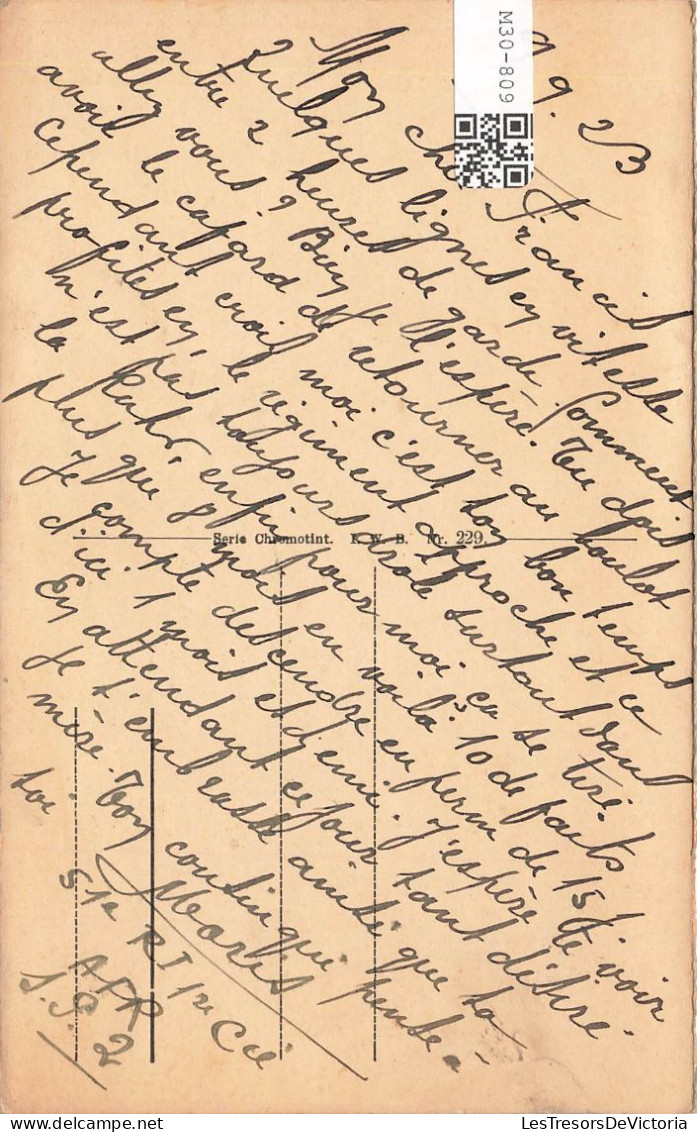 9.23
Mon cher Francis
Quelques lignes en vitesse
entre 2 heures de garde. Comment
allez vous ? Bien je l'espère. Tu dois
avoir le cafard de retourner au boulot
cependant crois moi c'est ton bon temps
profites en, le régiment approche et ce
n'est pas toujours drole surtout dans
la Ruhr, enfin pour moi ça se tire.
plus que 8 mois en voilà 10 de faits
Je compte descendre en perm de 15 j.
d'ici 1 mois et demi. J'espère te voir
En attendant ce jour tant désiré.
je t'embrasse ainsi que ta
mère. Ton cousin qui pense à
toi.
51e RI 1re Cie
AFR
S.P. 2
Serie Chromotint. Nr. 229.
M30-809
LesTresorsDeVictoria